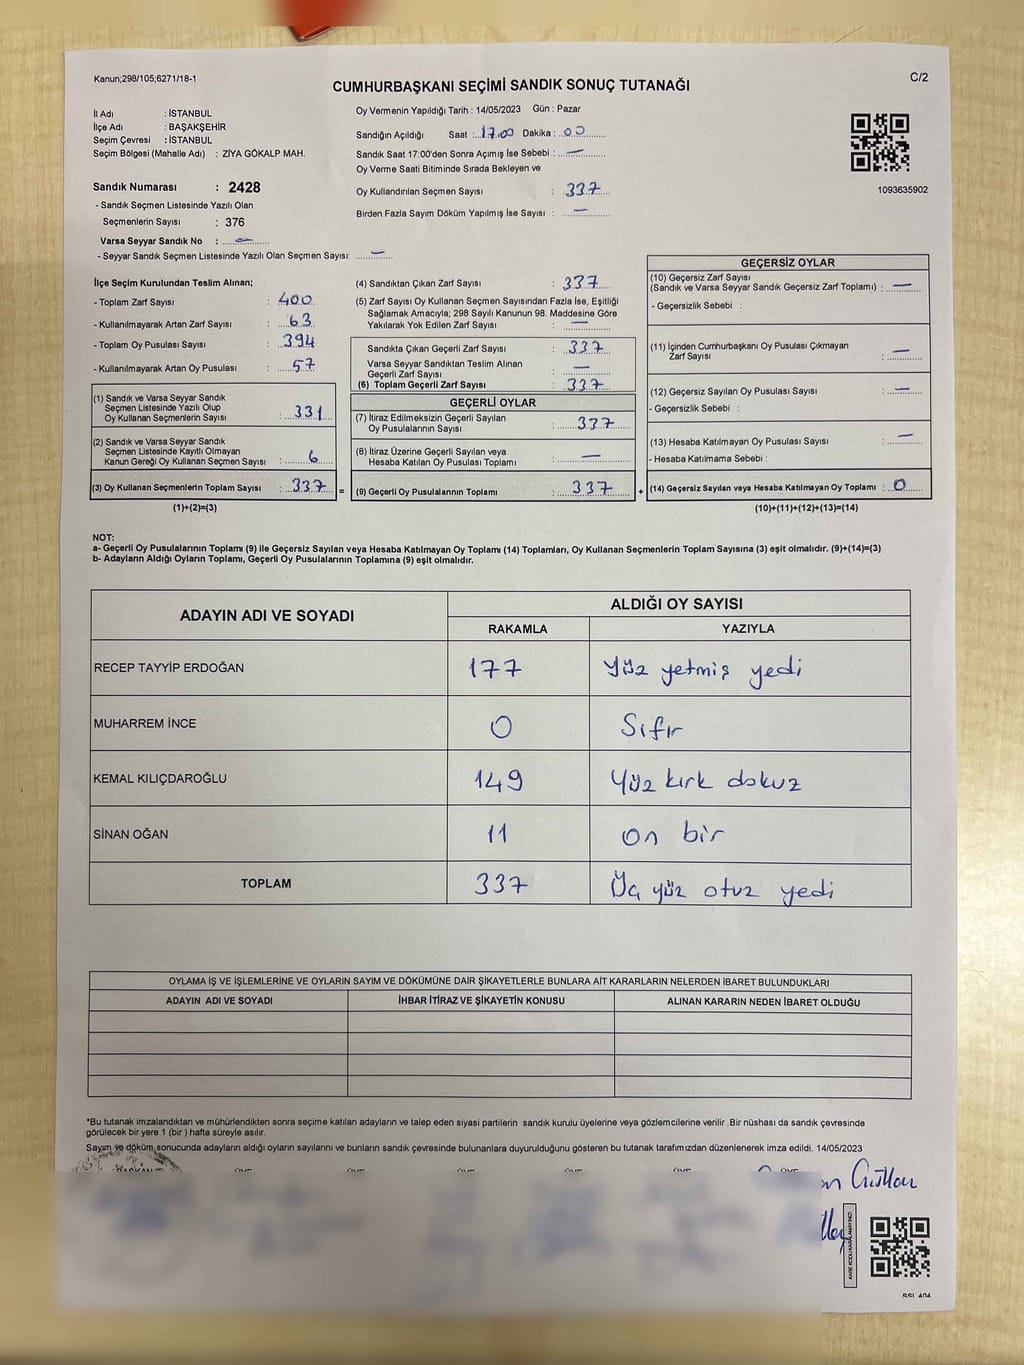 Kanun;298/105;6271/18-1
C/2
CUMHURBAŞKANI SEÇİMİ SANDIK SONUÇ TUTANAĞI
İl Adı : İSTANBUL
İlçe Adı : BAŞAKŞEHİR
Seçim Çevresi : İSTANBUL
Seçim Bölgesi (Mahalle Adı) : ZİYA GÖKALP MAH.
Sandık Numarası : 2428
- Sandık Seçmen Listesinde Yazılı Olan
Seçmenlerin Sayısı : 376
Varsa Seyyar Sandık No : —
- Seyyar Sandık Seçmen Listesinde Yazılı Olan Seçmen Sayısı: —
Oy Vermenin Yapıldığı Tarih : 14/05/2023 Gün : Pazar
Sandığın Açıldığı Saat : 17.00 Dakika : 00
Sandık Saat 17:00'den Sonra Açımış İse Sebebi : —
Oy Verme Saati Bitiminde Sırada Bekleyen ve
Oy Kullandırılan Seçmen Sayısı : 337
Birden Fazla Sayım Döküm Yapılmış İse Sayısı : —
1093635902
İlçe Seçim Kurulundan Teslim Alınan;
- Toplam Zarf Sayısı : 400
- Kullanılmayarak Artan Zarf Sayısı : 63
- Toplam Oy Pusulası Sayısı : 394
- Kullanılmayarak Artan Oy Pusulası : 57
(1) Sandık ve Varsa Seyyar Sandık
Seçmen Listesinde Yazılı Olup
Oy Kullanan Seçmenlerin Sayısı : 331
(2) Sandık ve Varsa Seyyar Sandık
Seçmen Listesinde Kayıtlı Olmayan
Kanun Gereği Oy Kullanan Seçmen Sayısı : 6
(3) Oy Kullanan Seçmenlerin Toplam Sayısı : 337 =
(1)+(2)=(3)
(4) Sandıktan Çıkan Zarf Sayısı : 337
(5) Zarf Sayısı Oy Kullanan Seçmen Sayısından Fazla İse, Eşitliği
Sağlamak Amacıyla; 298 Sayılı Kanunun 98. Maddesine Göre
Yakılarak Yok Edilen Zarf Sayısı : —
Sandıkta Çıkan Geçerli Zarf Sayısı : 337
Varsa Seyyar Sandıktan Teslim Alınan
Geçerli Zarf Sayısı : —
(6) Toplam Geçerli Zarf Sayısı : 337
GEÇERLİ OYLAR
(7) İtiraz Edilmeksizin Geçerli Sayılan
Oy Pusulalarının Sayısı : 337
(8) İtiraz Üzerine Geçerli Sayılan veya
Hesaba Katılan Oy Pusulası Toplamı : —
(9) Geçerli Oy Pusulalarının Toplamı : 337 +
GEÇERSİZ OYLAR
(10) Geçersiz Zarf Sayısı
(Sandık ve Varsa Seyyar Sandık Geçersiz Zarf Toplamı) : —
- Geçersizlik Sebebi :
(11) İçinden Cumhurbaşkanı Oy Pusulası Çıkmayan
Zarf Sayısı : —
(12) Geçersiz Sayılan Oy Pusulası Sayısı : —
- Geçersizlik Sebebi :
(13) Hesaba Katılmayan Oy Pusulası Sayısı : —
- Hesaba Katılmama Sebebi :
(14) Geçersiz Sayılan veya Hesaba Katılmayan Oy Toplamı : 0
(10)+(11)+(12)+(13)=(14)
NOT:
a- Geçerli Oy Pusulalarının Toplamı (9) ile Geçersiz Sayılan veya Hesaba Katılmayan Oy Toplamı (14) Toplamları, Oy Kullanan Seçmenlerin Toplam Sayısına (3) eşit olmalıdır. (9)+(14)=(3)
b- Adayların Aldığı Oyların Toplamı, Geçerli Oy Pusulalarının Toplamına (9) eşit olmalıdır.
ADAYIN ADI VE SOYADI ALDIĞI OY SAYISI
RAKAMLA YAZIYLA
RECEP TAYYİP ERDOĞAN 177 Yüz yetmiş yedi
MUHARREM İNCE 0 Sıfır
KEMAL KILIÇDAROĞLU 149 Yüz kırk dokuz
SİNAN OĞAN 11 on bir
TOPLAM 337 Üç yüz otuz yedi
OYLAMA İŞ VE İŞLEMLERİNE VE OYLARIN SAYIM VE DÖKÜMÜNE DAİR ŞİKAYETLERLE BUNLARA AİT KARARLARIN NELERDEN İBARET BULUNDUKLARI
ADAYIN ADI VE SOYADI İHBAR İTİRAZ VE ŞİKAYETİN KONUSU ALINAN KARARIN NEDEN İBARET OLDUĞU
*Bu tutanak imzalandıktan ve mühürlendikten sonra seçime katılan adayların ve talep eden siyasi partilerin sandık kurulu üyelerine veya gözlemcilerine verilir .Bir nüshası da sandık çevresinde
görülecek bir yere 1 (bir ) hafta süreyle asılır.
Sayım ve döküm sonucunda adayların aldığı oyların sayılarını ve bunların sandık çevresinde bulunanlara duyurulduğunu gösteren bu tutanak tarafımızdan düzenlenerek imza edildi. 14/05/2023